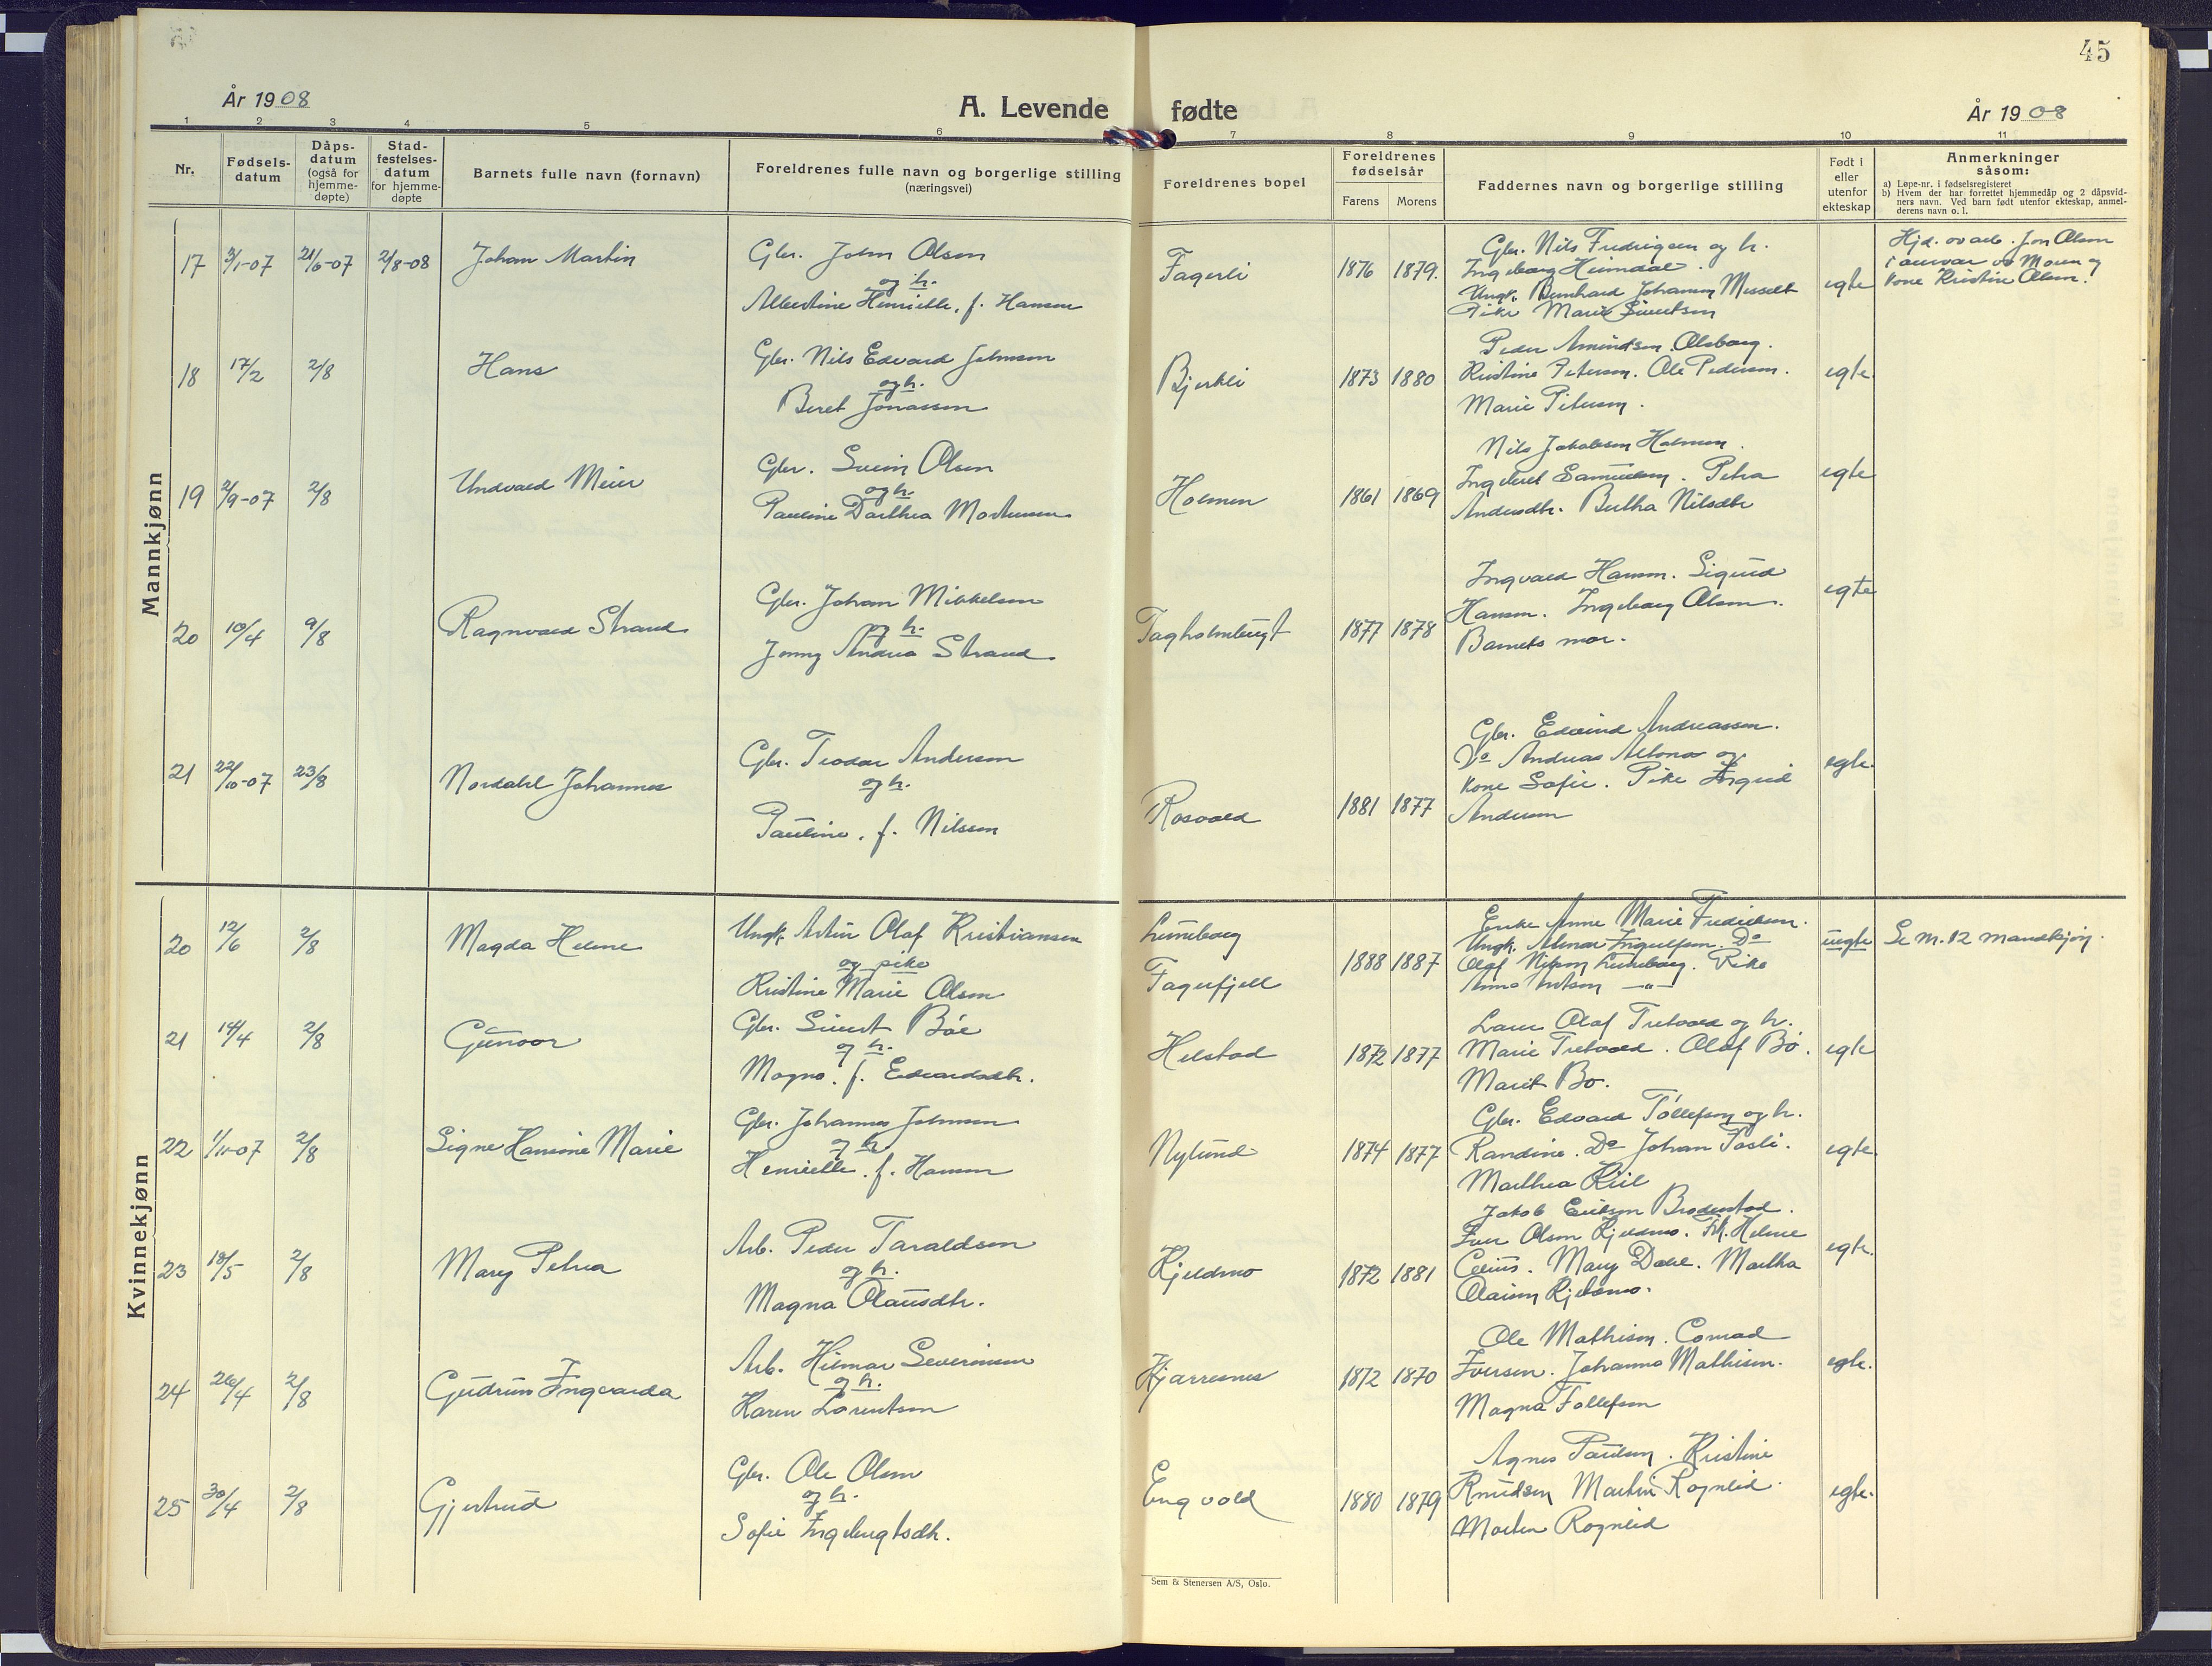 45
År 1908
A. Levende fødte
År 1908
1 2 3 4 5 6 7 8 9 10 11
Nr.
Fødsels-
datum
Dåps-
datum
(også for
hjemme-
døpte)
Stad-
festelses-
datum
for hjemme-
døpte
Barnets fulle navn (fornavn)
Foreldrenes fulle navn og borgerlige stilling
(næringsvei)
Foreldrenes bopel
Foreldrenes
fødselsår
Farens Morens
Faddernes navn og borgerlige stilling
Født i
eller
utenfor
ekteskap
Anmerkninger
såsom:
a) Løpe-nr. i fødselsregisteret
b) Hvem der har forrettet hjemmedåp og 2 dåpsvid-
ners navn. Ved barn født utenfor ekteskap, anmel-
derens navn o. l.
Mannkjønn
17 3/1-07 21/6-07 2/8-08 Johan Martin
Gbr. John Olsen
og h.
Albertine Henriette, f. Hansen
Fagerli 1876 1879.
Gbr. Nils Fredrigsen og h.
Ingeborg Heimdal.
Ungk. Bernhard Johansen
Pike Marie Sivertsen
egte
Jon Olsen
og
kone Kristine Olsen.
18 17/2 2/8 Hans
Gbr. Nils Edvard Johnsen
og h.
Beret Jonassen
Bjerkli 1873 1880
Peder Amundsen
Kristine Petersen. Ole Pedersen.
Marie Petersen.
egte.
19 2/9-07 2/8 Undvald Meier
Gbr. Svein Olsen
og h.
Pauline Dorthea Mortensen
Holmen 1861 1869
Nils Jakobsen Holmen.
Ingebret Samuelsen. Petra
Andersdtr. Bertha Nilsdtr
egte
20 10/4 9/8 Ragnvald Strand
Gbr. Johan Mikkelsen
og h.
Jenny Andrea Strand
1877 1878
Ingvald Hansen. Sigurd
Hansen. Ingeborg Olsen.
Barnets mor.
egte
21 22/10-07 23/8 Nordahl Johannes
Gbr. Teodor Andersen
og h.
Pauline, f. Nilssen
Rosvold 1881 1877
Gbr. Edvind Andreassen.
Do Andreas Altona og
kone Sofie. Pike Ingrid
Andersen
egte.
Kvinnekjønn
20 12/6 2/8 Magda Helene
Ungk. Artur Olaf Kristiansen
og pike
Kristine Marie Olsen
Luneborg
Fagerfjell
1888 1887
Enke Anne Marie Fredriksen.
Ungk. Almar Ingulfsen. Do
Olaf Nilsen Luneborg. Pike
Anna
uegte Se M. 12 mandkjøn.
21 14/4 2/8 Gunvor
Gbr. Sivert Bøe
og h.
Magna, f. Edvardsdtr.
Helstad 1872 1877
Olaf Tretvold og h.
Marie Tretvold. Olaf Bø.
Marit Bø.
egte
22 1/11-07 2/8 Signe Hansine Marie
Gbr. Johannes Johnsen
og h.
Henriette, f. Hansen
Nylund 1874 1877
Gbr. Edvard Tollefsen og h.
Randine. Do Johan Fosli.
Marthea Kiil
egte.
23 18/5 2/8 Mary Petrea
Arb. Peder Taraldsen
og h.
Magna Olausdtr.
Kjeldmo 1872 1881
Jakob Eriksen Brodenstad.
Iver Olsen Kjeldmo. Frk. Helene
Mary Dahl. Martha
Kjeldmo.
egte.
24 26/4 2/8 Gudrun Ingvarda
Arb. Hilmar Severinsen
og h.
Karen Lorentsen
Kjarresnes 1872 1870
Ole Mathisen. Conrad
Iversen. Johanna Mathisen.
Magna Tollefsen
egte.
25 30/4 2/8 Gjertrud
Gbr. Ole Olsen
og h.
Sofie Ingebrigtsdtr.
Engvold 1880 1879
Agnes Paulsen. Kristine
Knudsen Martin Rognlid.
Morten Rognlid
egte.
Sem & Stenersen A/S, Oslo.